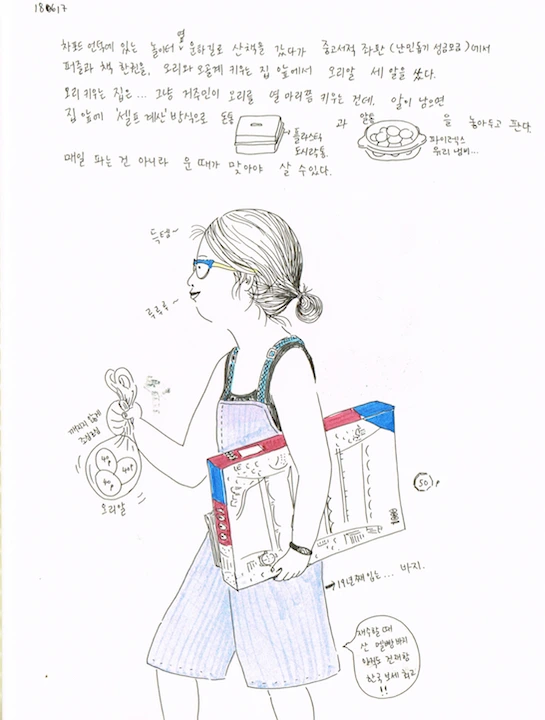 180617
차포드 언덕에 있는 놀이터 옆 운하길로 산책을 갔다가 중고서적 좌판(난민돕기 성금모금)에서
퍼즐과 책 한권을, 오리와 오동계 키우는 집 앞에서 오리알 세 알을 샀다.
오리 키우는 집은... 그냥 거주민이 오리를 열 마리쯤 키우는 건데, 알이 남으면
집 앞에 '셀프 계산' 방식으로 돈통 과 알통 을 놓아두고 판다.
플라스틱
도시락통.
파이렉스
유리 냄비...
매일 파는 건 아니라 운 때가 맞아야 살 수 있다.
득템~
루루루~
깨지지 않게
조심조심
40p
40p
40p
오리알
50 p
19년째 입는... 바지.
재수할 때
산 멜빵바지
아직도 건재함
한국 보세 최고
!!